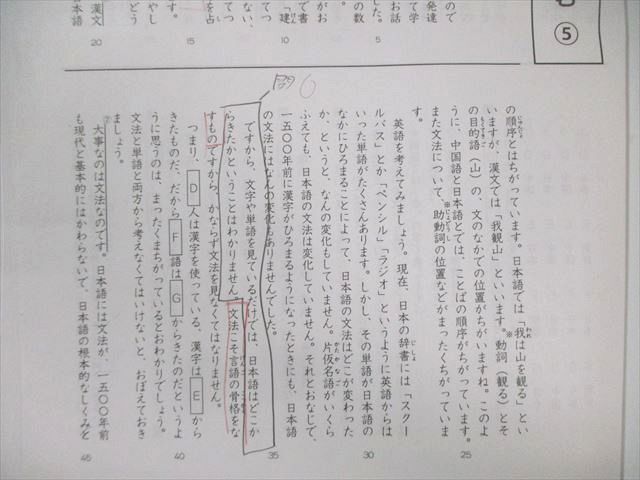 ⑤
ので
発達
て学
お話
した。
の数
がお
で書
「建
てつ
ない、
てつ
を占
す。
やし
どう
漢文
本語
5
10
15
20
の順序とはちがっています。日本語では「我は山を観る」とい
いますが、漢文では「我観山」といいます。※動詞（観る）とそ
の目的語（山）の、文のなかでの位置がちがいますね。このよ
うに、中国語と日本語とでは、ことばの順序がちがっています。
また文法について、※助動詞の位置などがまったくちがっていま
す。
英語を考えてみましょう。現在、日本の辞書には「スクー
ルバス」とか「ペンシル」「ラジオ」というように英語からは
いった単語がたくさんあります。しかし、その単語が日本語の
なかにひろまることによって、日本語の文法はどこが変わった
か、というと、なんの変化もしていません。片仮名語がいくら
ふえても、日本語の文法は変化していません。それとおなじで、
一五〇〇年前に漢字がひろまるようになったときにも、日本語
の文法にはなんの変化もありませんでした。
ですから、文字や単語を見ているだけでは、日本語はどこか
らきたかということはわかりません。文法こそ言語の骨格をな
すものですから、かならず文法を見なくてはなりません。
つまり、D人は漢字を使っている、漢字はEから
きたものだ、だからF語はGからきたのだというよ
うに思うのは、まったくまちがっているとおわかりでしょう。
文法と単語と両方から考えなくてはいけないと、おぼえておき
ましょう。
②大事なのは文法なのです。日本語には文法が、一五〇〇年前
も現代と基本的にはかわらないで、日本語の根本的なしくみと
25
30
35
40
45
問6